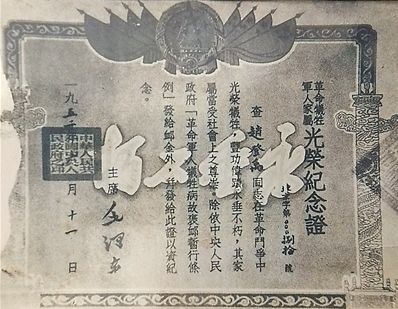 革命犧牲
軍人家屬
光榮紀念證
字第000捌拾號
查趙登禹同志在革命鬥爭中
光榮犧牲，豐功偉績永垂不朽，其家
屬當受社會上之尊崇。除依中央人民
政府「革命軍人犧牲病故褒卹暫行條
例」發給卹金外，并發給此證以資紀
念。
主席 毛澤東
一九五 月十一日
永垂不朽